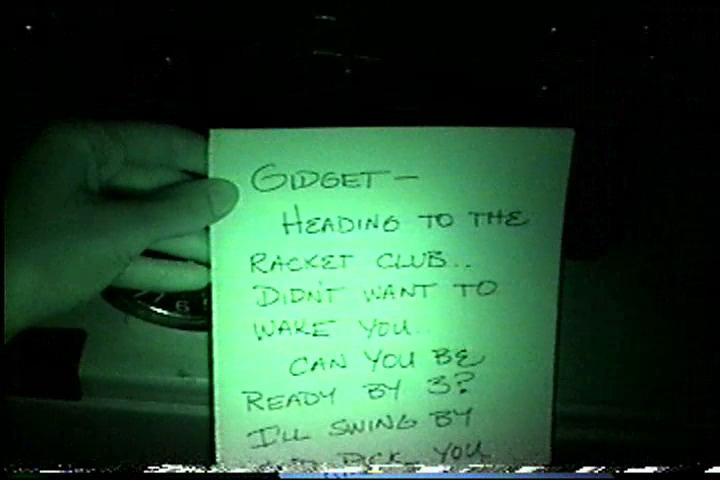 GIDGET —
HEADING TO THE
RACKET CLUB...
DIDN'T WANT TO
WAKE YOU...
CAN YOU BE
READY BY 3?
I'LL SWING BY
YOU